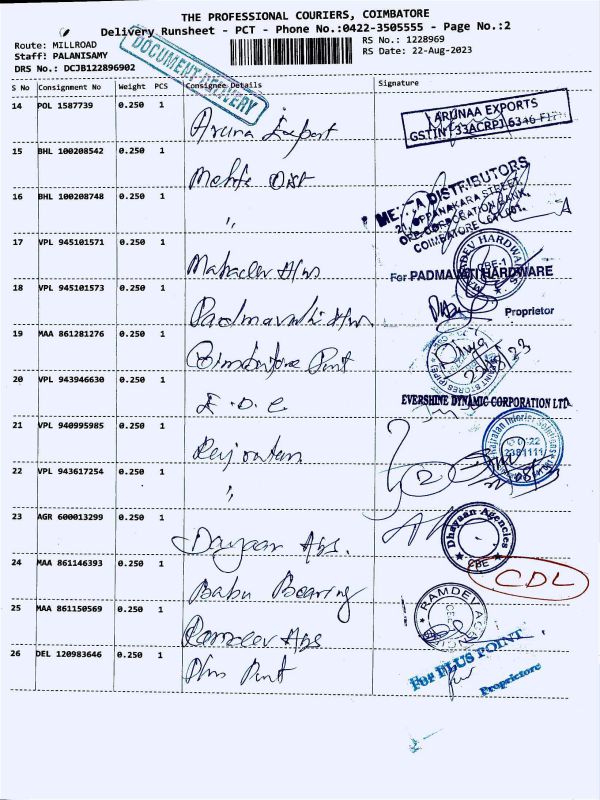 THE PROFESSIONAL COURIERS, COIMBATORE
Delivery Runsheet - PCT - Phone No.:0422-3505555 - Page No.:2
Route: MILLROAD
RS No.: 1228969
Staff: PALANISAMY
RS Date: 22-Aug-2023
DRS No.: DCJB122896902
DOCUMENT DELIVERY
S No Consignment No Weight PCS Consignee Details Signature
14 POL 1587739 0.250 1 Aruna Export
ARUNAA EXPORTS
15 BHL 100208542 0.250 1 Mehta Dist
16 BHL 100208748 0.250 1 "
DISTRIBUTORS
21, OPPANAKARA STREET,
OPP. CORPORATION BANK,
COIMBATORE - 641 001.
17 VPL 945101571 0.250 1 Mahadev H/ws
CBE-1
18 VPL 945101573 0.250 1 Padmavathi H/ws
For PADMAVATI HARDWARE
Proprietor
19 MAA 861281276 0.250 1 Coimbatore Paint
20 VPL 943946630 0.250 1 E.D.C
EVERSHINE DYNAMIC CORPORATION LTD.
21 VPL 940995985 0.250 1
22 VPL 943617254 0.250 1 "
2381111
23 AGR 600013299 0.250 1 Dayaan Ags.
Dhayaan Agencies
CBE
24 MAA 861146393 0.250 1 Babu Bearing
CDL
25 MAA 861150569 0.250 1 Ramdev Ags
RAMDEV AGENCIES
26 DEL 120983646 0.250 1 Plus Point
For PLUS POINT
Proprietore